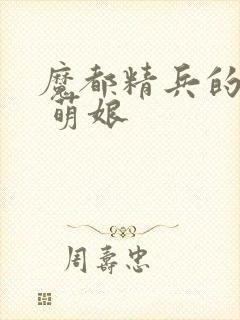 魔都精兵的
萌娘
周壽忠